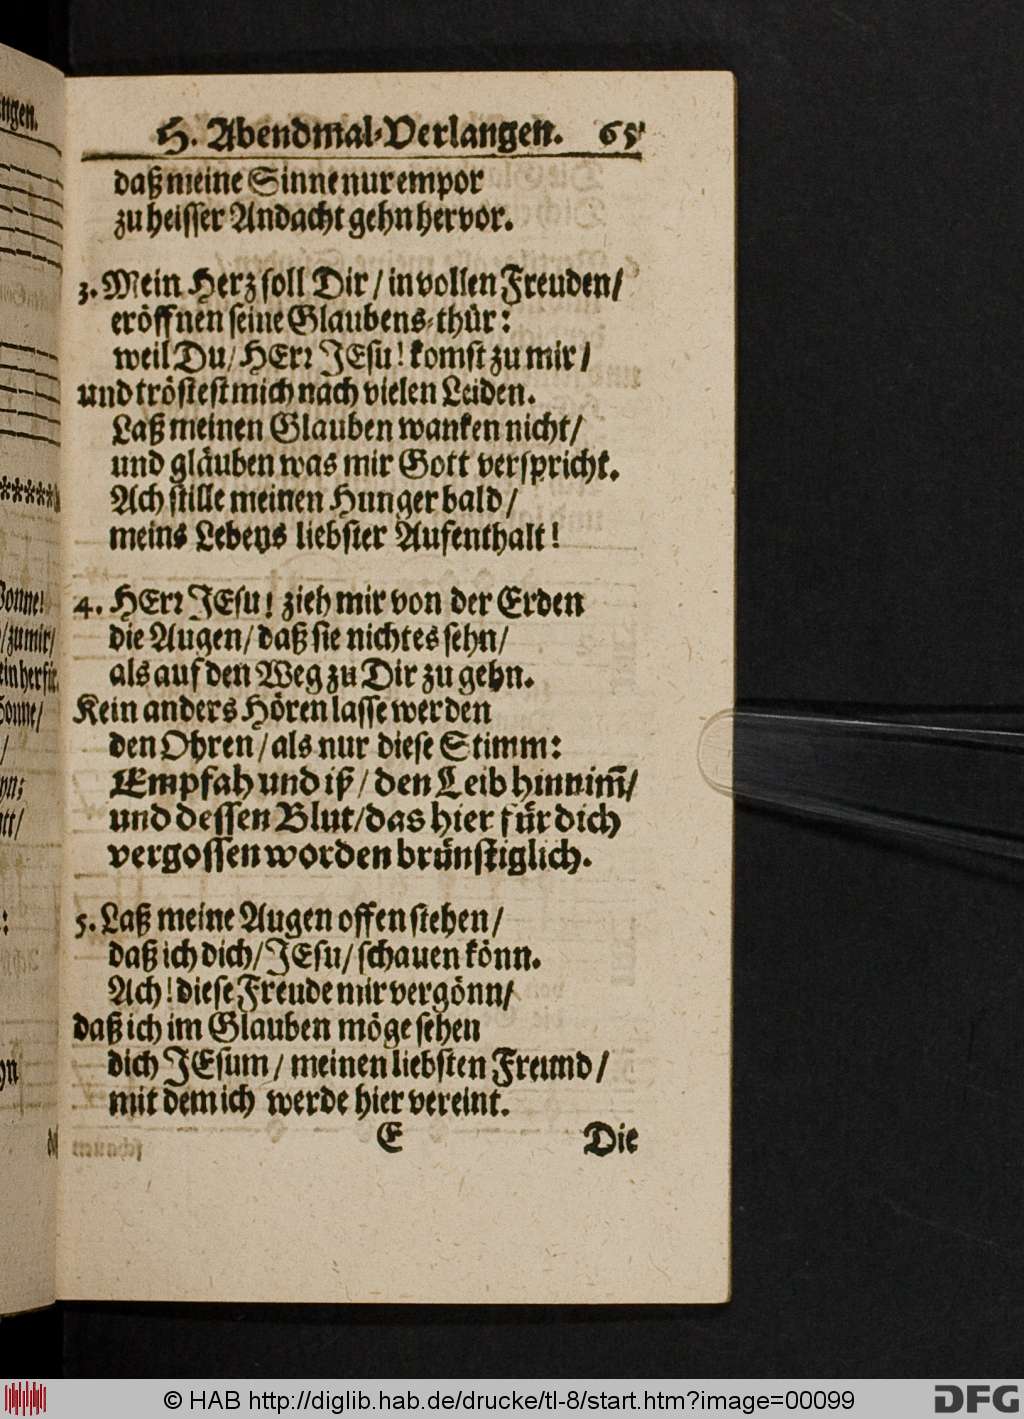 H. Abendmal-Verlangen. 65
daß meine Sinne nur empor
zu heisser Andacht gehn hervor.
3. Mein Herz soll Dir / in vollen Freuden /
eröffnen seine Glaubens-thür:
weil Du / HErr JEsu! komst zu mir /
und tröstest mich nach vielen Leiden.
Laß meinen Glauben wanken nicht /
und gläuben was mir Gott verspricht.
Ach stille meinen Hunger bald /
meins Lebens liebster Aufenthalt!
4. HErr JEsu! zieh mir von der Erden
die Augen / daß sie nichtes sehn /
als auf den Weg zu Dir zu gehn.
Kein anders Hören lasse werden
den Ohren / als nur diese Stimm:
Empfah und iß / den Leib hinnim̃ /
und dessen Blut / das hier für dich
vergossen worden brünstiglich.
5. Laß meine Augen offen stehen /
daß ich dich / JEsu / schauen könn.
Ach! diese Freude mir vergönn /
daß ich im Glauben möge sehen
dich JEsum / meinen liebsten Freund /
mit dem ich werde hier vereint.
E Die
© HAB http://diglib.hab.de/drucke/tl-8/start.htm?image=00099
DFG